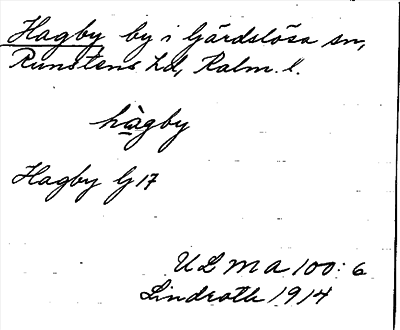 Hagby by i Gärdslösa sn,
Runstens hd, Kalm. l.
hàgby
Hagby G 17
ULMA 100:6
Lindroth 1914